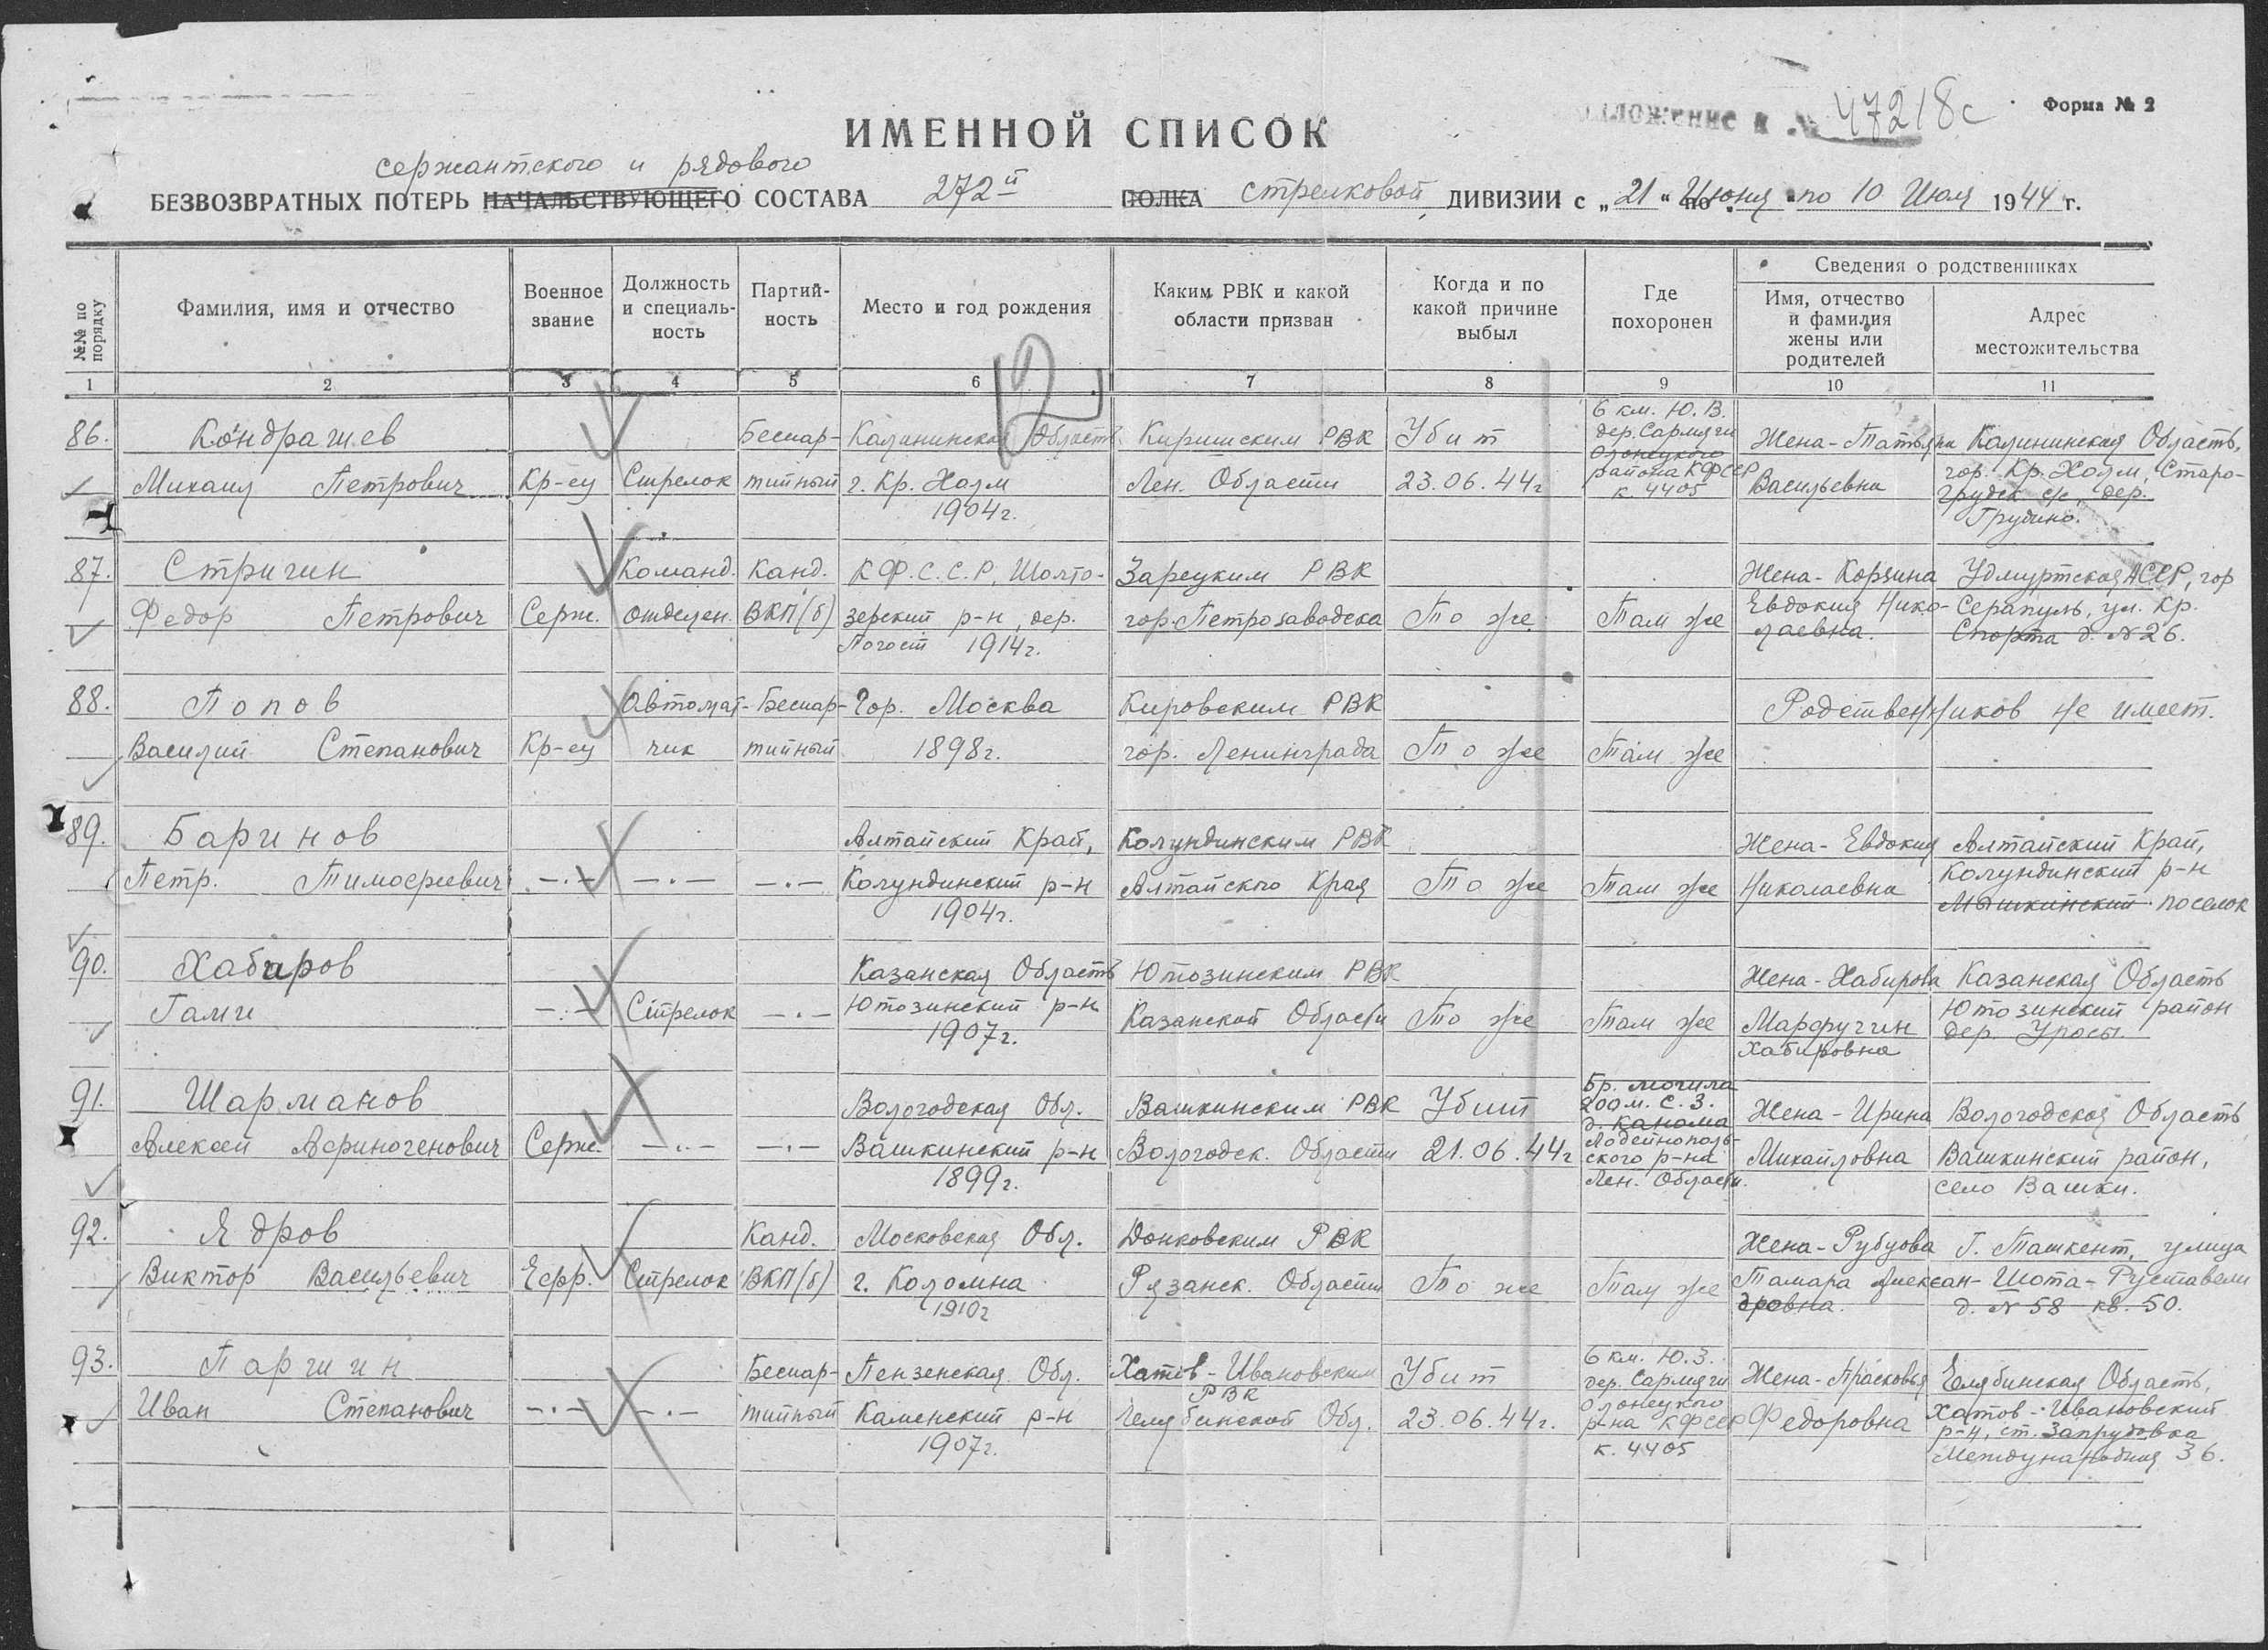 ИМЕННОЙ СПИСОК
47218с
Форма № 2
сержантского и рядового
БЕЗВОЗВРАТНЫХ ПОТЕРЬ НАЧАЛЬСТВУЮЩЕГО СОСТАВА 272й ПОЛКА стрелковой ДИВИЗИИ с „21“ Июня по 10 Июля 1944 г.
№№ по порядку
Фамилия, имя и отчество
Военное звание
Должность и специаль-ность
Партий-ность
Место и год рождения
Каким РВК и какой области призван
Когда и по какой причине выбыл
Где похоронен
Сведения о родственниках
Имя, отчество и фамилия жены или родителей
Адрес местожительства
1 2 3 4 5 6 7 8 9 10 11
86. Кондрашев Михаил Петрович
Кр-ец
Стрелок
Беспар-тийный
Калининская Область г. Кр. Холм 1904г.
Киришским РВК Лен. Области
Убит 23.06.44г
6 км. Ю.В. дер. Сармяги Олонецкого района КФССР к. 4405
Жена - Татьяна Васильевна
Калининская Область, гор. Кр. Холм, Старо- с/с, дер. Грудино.
87. Стригин Федор Петрович
Серж.
Команд. отделен.
Канд. ВКП(б)
К.Ф.С.С.Р, Шолто-зерский р-н, дер. Погост 1914г.
Зарецким РВК гор. Петрозаводска
То же
Там же
Жена - Корзина Евдокия Нико-лаевна.
Удмуртская АССР, гор Сарапуль, ул. Кр. Спорта д. №26.
88. Попов Василий Степанович
Кр-ец
Автомат-чик
Беспар-тийный
Гор. Москва 1898г.
Кировским РВК гор. Ленинграда
То же
Там же
Родственников не имеет.
89. Баринов Петр. Тимофеевич
—.—
—.—
—.—
Алтайский Край, Колундинский р-н 1904г.
Колундинским РВК Алтайского Края
То же
Там же
Жена - Евдокия Николаевна
Алтайский Край, Колундинский р-н Мышкинский поселок
90. Хабиров Гали
—.—
Стрелок
—.—
Казанская Область Ютозинский р-н 1907г.
Ютозинским РВК Казанской Области
То же
Там же
Жена - Хабирова Хабировна
Казанская Область Ютозинский район дер. Урасы.
91. Шарманов Алексей Афиногенович
Серж.
—.—
—.—
Вологодская Обл. Вашкинский р-н 1899г.
Вашкинским РВК Вологодск. Области
Убит 21.06.44г
Бр. могила 200м. С.З. д. Канома Лодейнополь-ского р-на Лен. Области.
Жена - Ирина Михайловна
Вологодская Область Вашкинский район, село Вашки.
92. Ядров Виктор Васильевич
Ефр.
Стрелок
Канд. ВКП(б)
Московская Обл. г. Коломна 1910г
Донковским РВК Рязанск. Области
То же
Там же
Жена - Рубцова Тамара Алексан-дровна.
Г. Ташкент, улица Шота-Руставели д. №58 кв. 50.
93. Паршин Иван Степанович
—.—
—.—
Беспар-тийный
Пензенская Обл. Каменский р-н 1907г.
Хатов-Ивановским РВК Челябинской Обл.
Убит 23.06.44г.
6 км. Ю.З. дер. Сармяги Олонецкого р-на КФССР к. 4405
Жена - Прасковья Федоровна
Челябинская Область, Хатов-Ивановский р-н, ст. Запрудовка Международная 36.